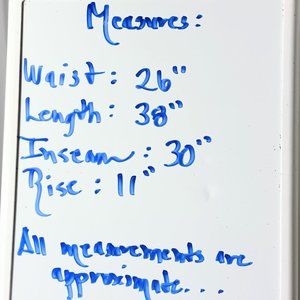 Measures:
Waist: 26"
Length: 38"
Inseam: 30"
Rise: 11"
All measurements are
approximate...